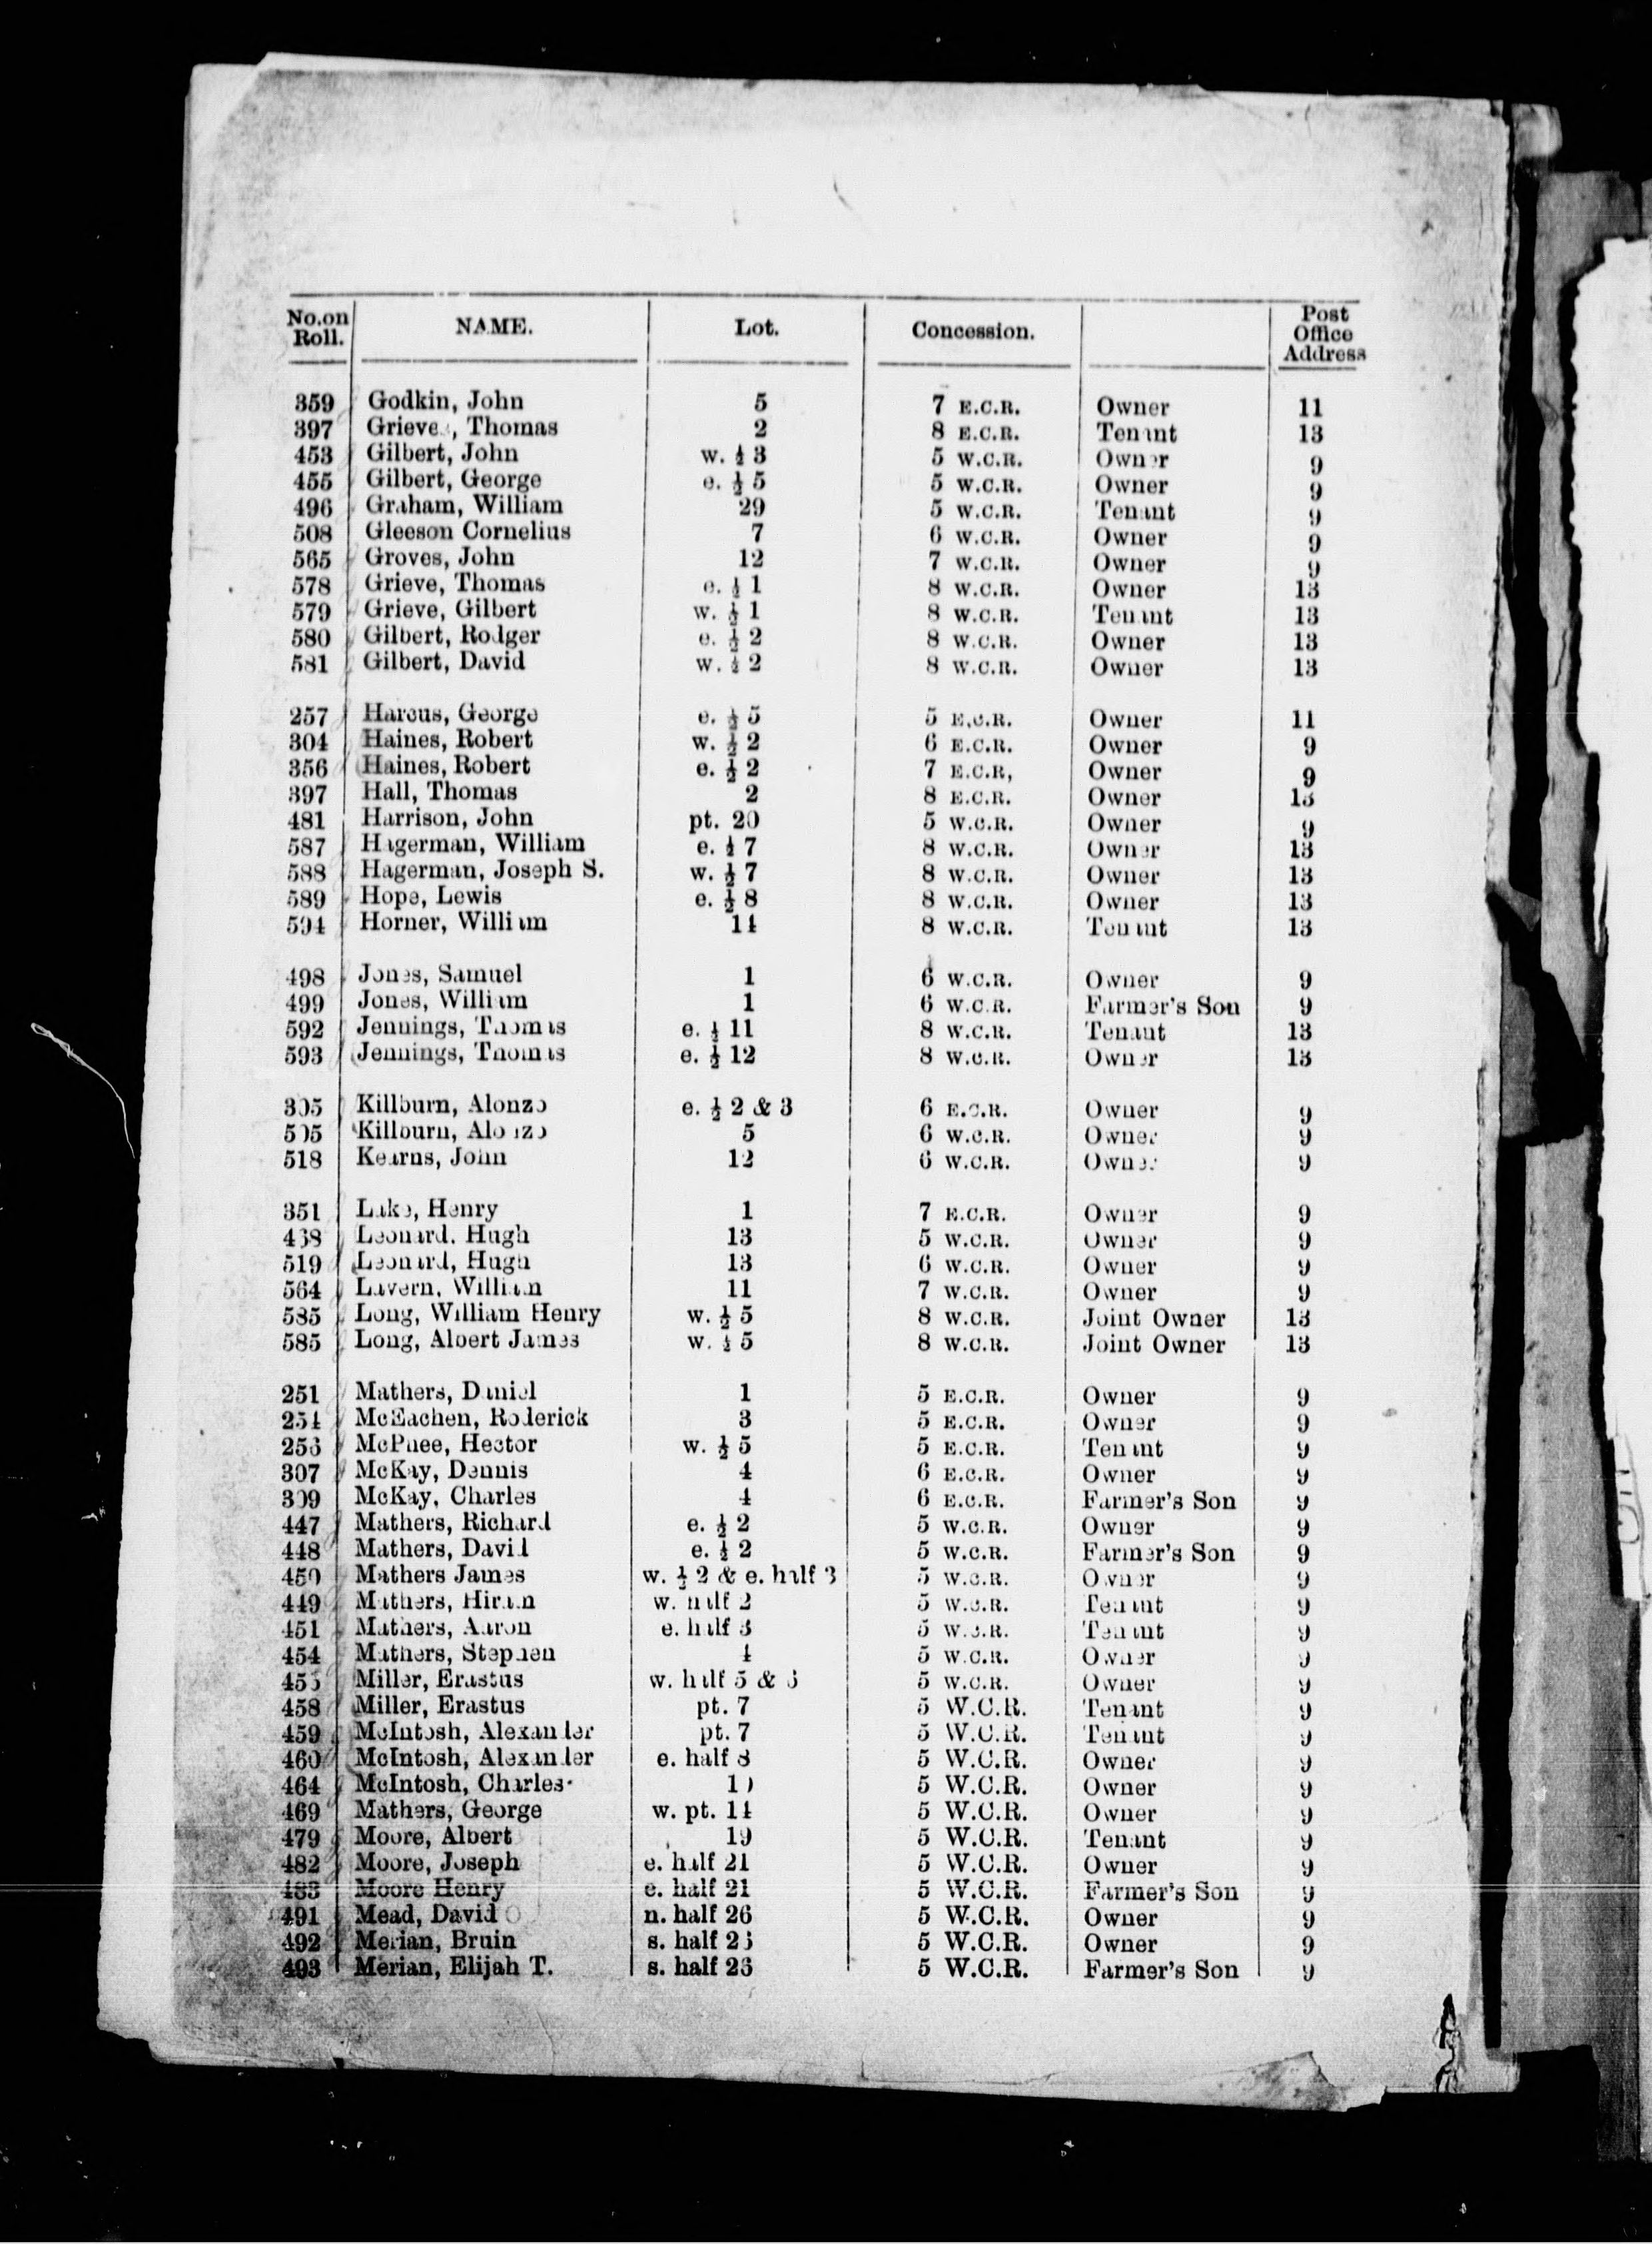 No. on Roll. NAME. Lot. Concession. Post Office Address
359 Godkin, John 5 7 E.C.R. Owner 11
397 Grieve, Thomas 2 8 E.C.R. Tenant 13
453 Gilbert, John w. ½ 3 5 W.C.R. Owner 9
455 Gilbert, George e. ½ 5 5 W.C.R. Owner 9
496 Graham, William 29 5 W.C.R. Tenant 9
508 Gleeson Cornelius 7 6 W.C.R. Owner 9
565 Groves, John 12 7 W.C.R. Owner 9
578 Grieve, Thomas e. ½ 1 8 W.C.R. Owner 13
579 Grieve, Gilbert w. ½ 1 8 W.C.R. Tenant 13
580 Gilbert, Rodger e. ½ 2 8 W.C.R. Owner 13
581 Gilbert, David w. ½ 2 8 W.C.R. Owner 13
257 Harcus, George e. ½ 5 5 E.C.R. Owner 11
304 Haines, Robert w. ½ 2 6 E.C.R. Owner 9
356 Haines, Robert e. ½ 2 7 E.C.R, Owner 9
397 Hall, Thomas 2 8 E.C.R. Owner 13
481 Harrison, John pt. 20 5 W.C.R. Owner 9
587 Hagerman, William e. ½ 7 8 W.C.R. Owner 13
588 Hagerman, Joseph S. w. ½ 7 8 W.C.R. Owner 13
589 Hope, Lewis e. ½ 8 8 W.C.R. Owner 13
594 Horner, William 14 8 W.C.R. Tenant 13
498 Jones, Samuel 1 6 W.C.R. Owner 9
499 Jones, William 1 6 W.C.R. Farmer's Son 9
592 Jennings, Thomas e. ½ 11 8 W.C.R. Tenant 13
593 Jennings, Thomas e. ½ 12 8 W.C.R. Owner 13
305 Killburn, Alonzo e. ½ 2 & 3 6 E.C.R. Owner 9
505 Killburn, Alonzo 5 6 W.C.R. Owner 9
518 Kearns, John 12 6 W.C.R. Owner 9
351 Lake, Henry 1 7 E.C.R. Owner 9
468 Leonard. Hugh 13 5 W.C.R. Owner 9
519 Leonard, Hugh 13 6 W.C.R. Owner 9
564 Lavern, William 11 7 W.C.R. Owner 9
585 Long, William Henry w. ½ 5 8 W.C.R. Joint Owner 13
585 Long, Albert James w. ½ 5 8 W.C.R. Joint Owner 13
251 Mathers, Daniel 1 5 E.C.R. Owner 9
254 McEachen, Roderick 3 5 E.C.R. Owner 9
256 McPhee, Hector w. ½ 5 5 E.C.R. Tenant 9
307 McKay, Dennis 4 6 E.C.R. Owner 9
309 McKay, Charles 4 6 E.C.R. Farmer's Son 9
447 Mathers, Richard e. ½ 2 5 W.C.R. Owner 9
448 Mathers, David e. ½ 2 5 W.C.R. Farmer's Son 9
450 Mathers James w. ½ 2 & e. half 3 5 W.C.R. Owner 9
449 Mathers, Hiram w. half 2 5 W.C.R. Tenant 9
451 Mathers, Aaron e. half 3 5 W.C.R. Tenant 9
454 Mathers, Stephen 4 5 W.C.R. Owner 9
Miller, Erastus w. half 5 & 6 5 W.C.R. Owner 9
458 Miller, Erastus pt. 7 5 W.C.R. Tenant 9
459 McIntosh, Alexander pt. 7 5 W.C.R. Tenant 9
460 McIntosh, Alexander e. half 8 5 W.C.R. Owner 9
464 McIntosh, Charles 10 5 W.C.R. Owner 9
469 Mathers, George w. pt. 14 5 W.C.R. Owner 9
479 Moore, Albert 19 5 W.C.R. Tenant 9
482 Moore, Joseph e. half 21 5 W.C.R. Owner 9
483 Moore Henry e. half 21 5 W.C.R. Farmer's Son 9
491 Mead, David n. half 26 5 W.C.R. Owner 9
492 Merian, Bruin s. half 26 5 W.C.R. Owner 9
493 Merian, Elijah T. s. half 26 5 W.C.R. Farmer's Son 9